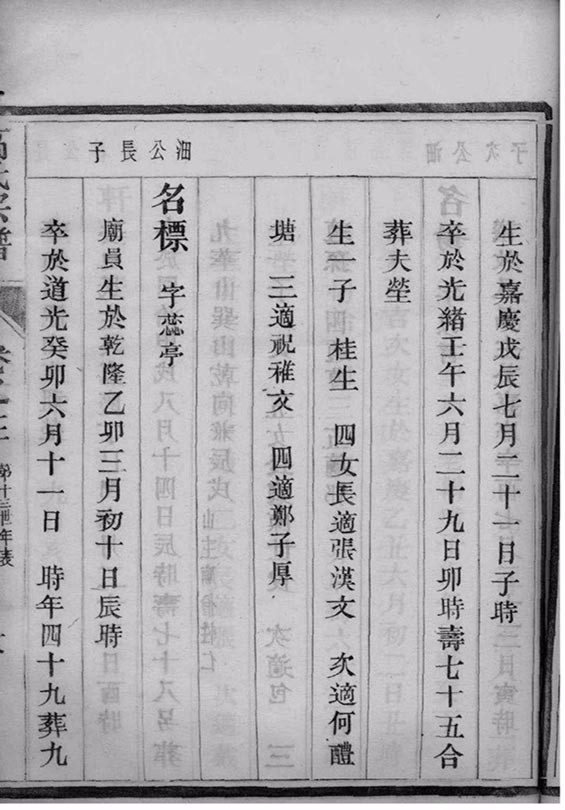 生於嘉慶戊辰七月二十一日子時
卒於光緒壬午六月二十九日卯時壽七十五合
葬夫塋
生一子 桂生 四女長適張漢文 次適何醴
塘 三適祝稚文 四適鄭子厚
公長子
名標 字蕊亭
廟員生於乾隆乙卯三月初十日辰時
卒於道光癸卯六月十一日 時年四十九葬九
氏宗譜
世年表